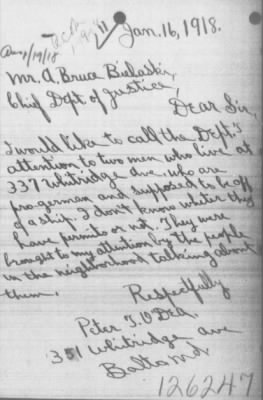 Jan. 16, 1918.
Ans 1/19/18
Mr. A. Bruce Bielaski,
Chief Dept. of Justice,
Dear Sir,
I would like to call the Dept.'s
attention to two men who live at
337 Whitridge Ave. who are
pro german and supposed to be off
of a ship. I don't know wheter they
have permits or not. They were
brought to my attention by the people
in the nieghborhood talking about
them.
Respectfully
Peter T. O'Dea.
351 Whitridge ave
Balto Md.
126247